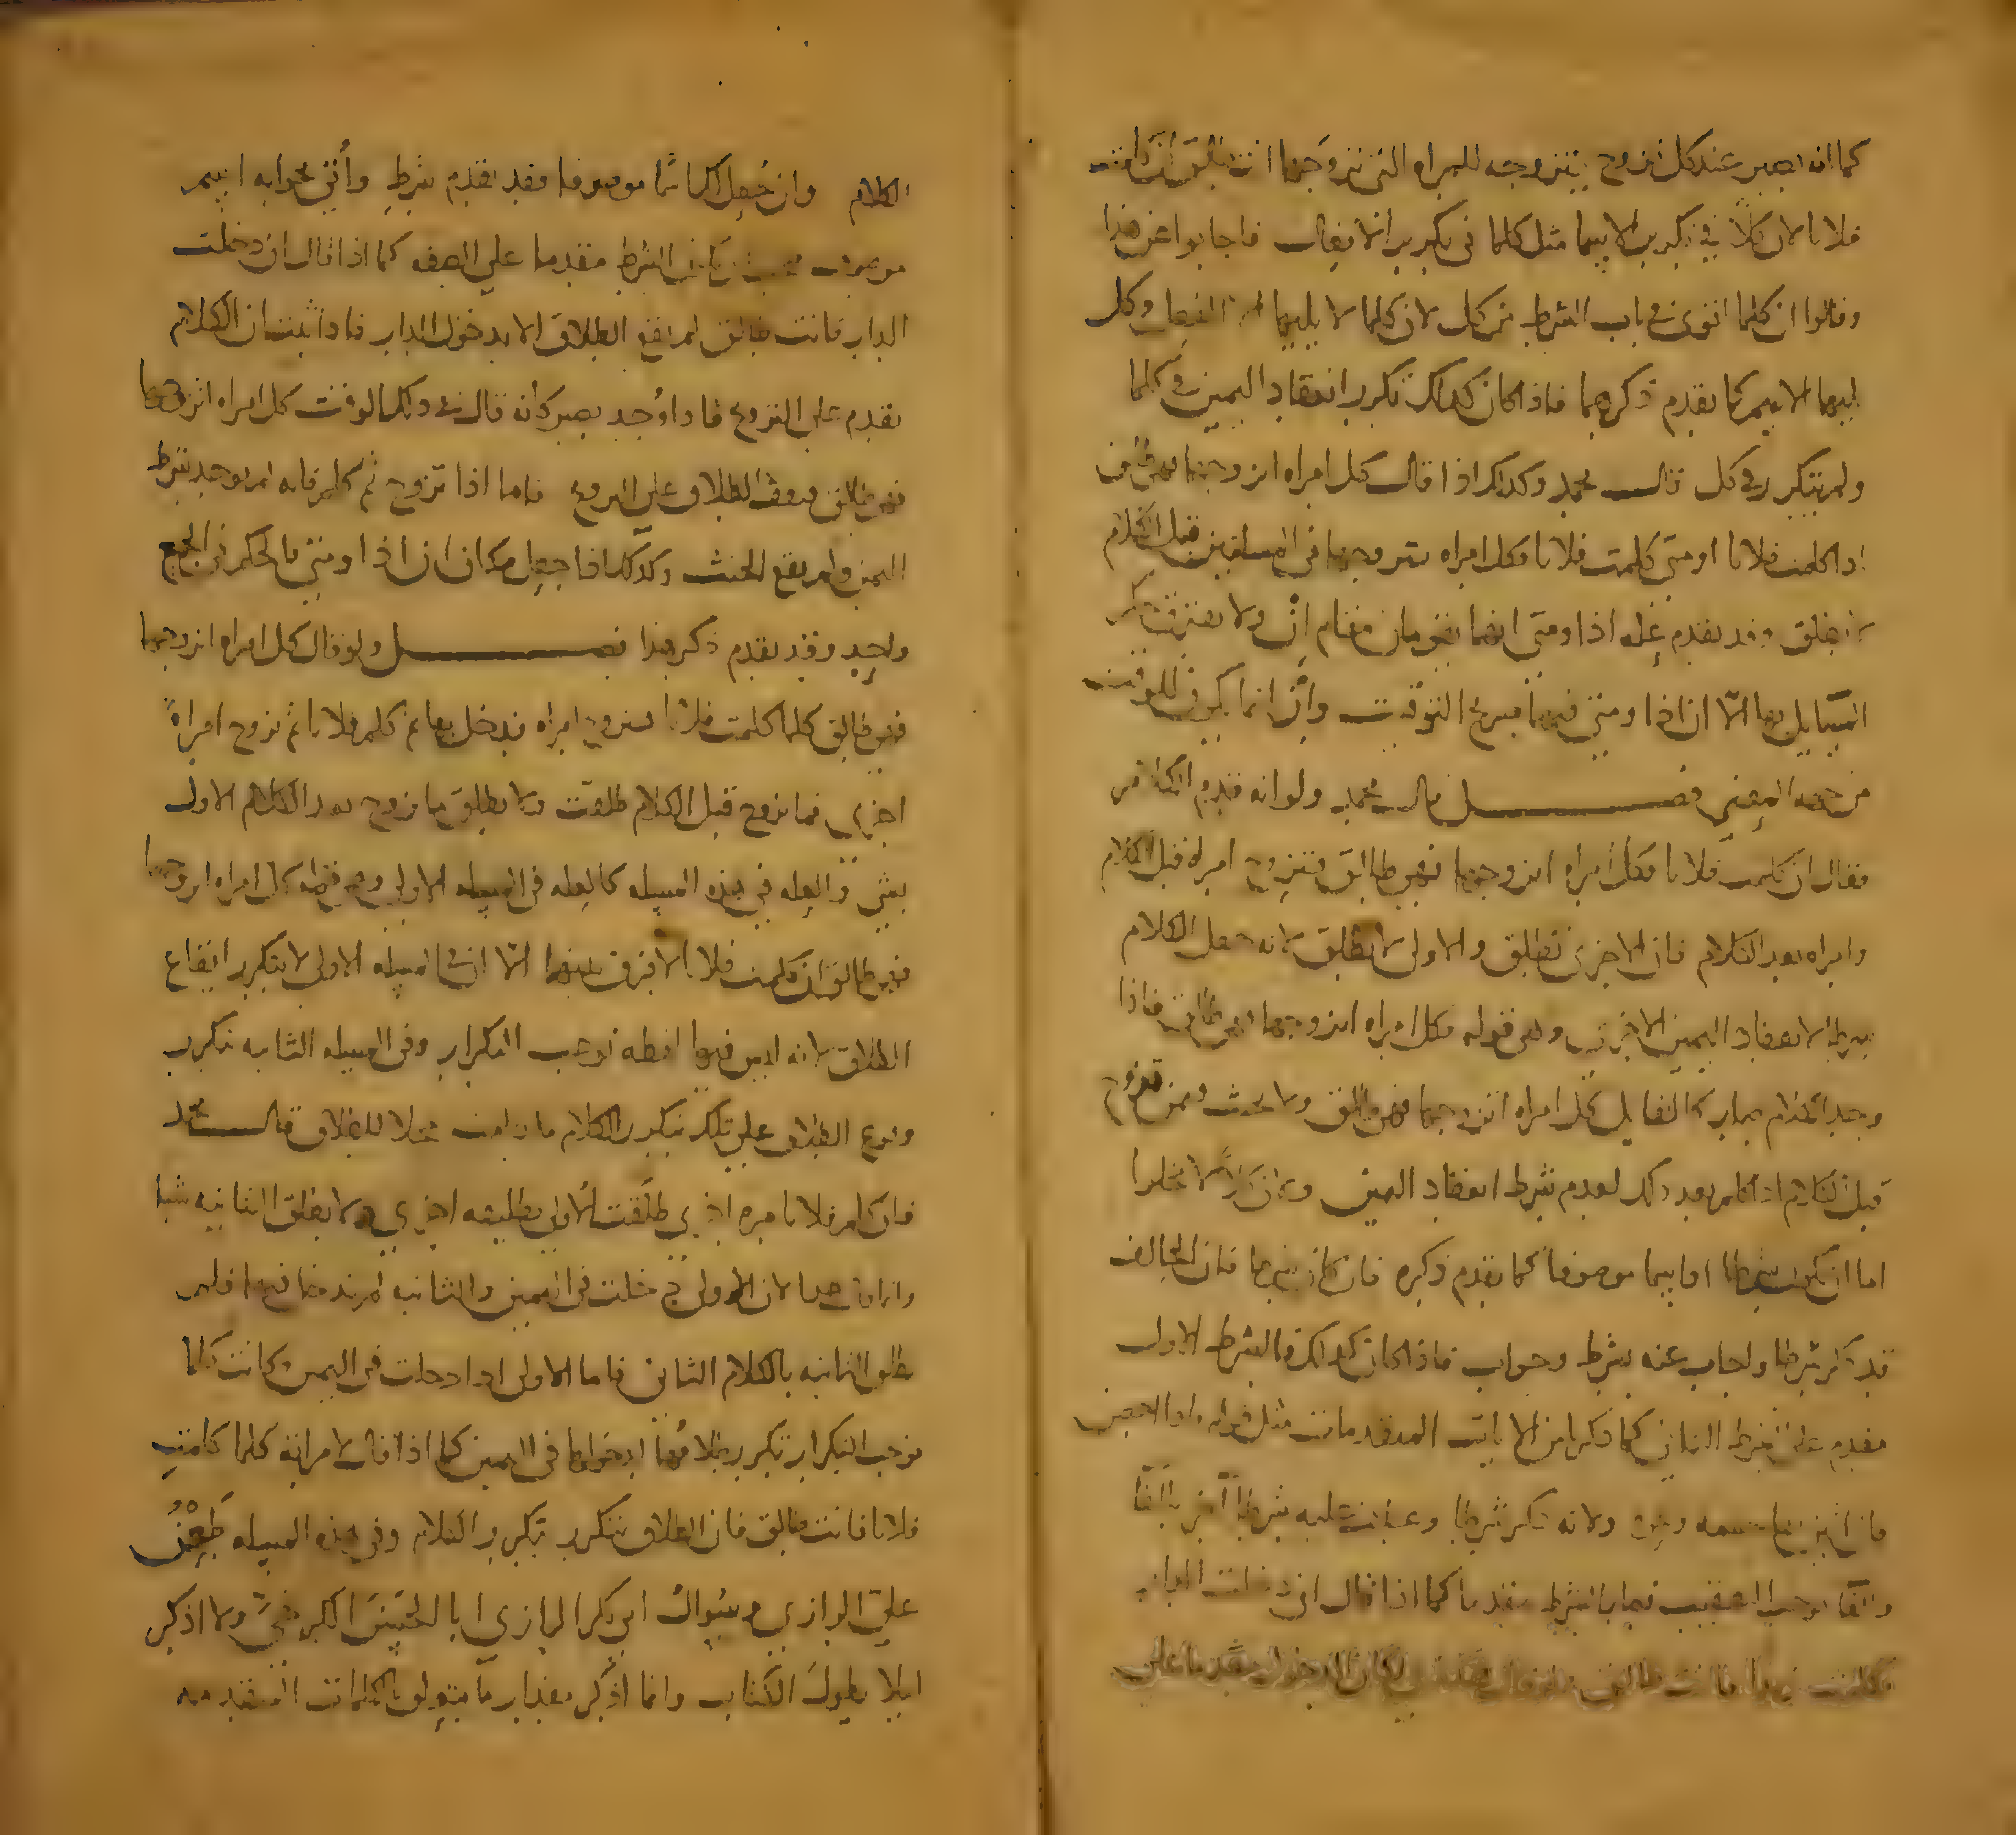 كما انه يصير عند كل تزوج يتزوجه للمراه التي تزوجها انت طالق ان كلمت
فلانا لان كلا في تكرير الاسما مثل كلما في تكرير الافعال فاجابوا عن هذا
وقالوا ان كلما اقوى في باب الشرط من كل لان كلما لا يليها الا الفعل وكل
يليها الاسم كما تقدم ذكرهما فاذا كان كذلك تكرر انعقاد اليمين في كلما
ولم يتكرر في كل قال محمد وكذلك اذا قال كل امراه اتزوجها فهي طالق
اذا كلمت فلانا او متى كلمت فلانا فكل امراه يتزوجها في المسلتين قبل الكلام
تطلق وقد تقدم عله اذا ومتى انهما يقومان مقام ان ولا يفترق حكم
المسايل بها الا ان اذا ومتى فيهما صريح التوقيت وان انما يكون للوقت
من جهه المعنى فصل قال محمد ولو انه قدم الكلام
فقال ان كلمت فلانا فكل امراه اتزوجها فهي طالق فتزوج امراه قبل الكلام
وامراه بعد الكلام فان الاخرى تطلق والاولى لا تطلق لانه جعل الكلام
شرطا لانعقاد اليمين الاخرى وهي قوله فكل امراه اتزوجها فهي طالق فاذا
وجد الكلام صار كالقايل كل امراه اتزوجها فهي طالق ولا يحنث فيمن تزوج
قبل الكلام اذا كلم بعد ذلك لعدم شرط انعقاد اليمين ولان كلا لا تخلوا
اما ان تكون شرطا او اسما موصوفا كما تقدم ذكره فان كان شرطا فان الحالف
قد ذكر شرطا واجاب عنه بشرط وجواب فاذا كان كذلك فالشرط الاول
مقدم على الشرط الثاني كما ذكر في الايات المتقدمات مثل قوله فاذا احصن
فان اتين بفاحشه ولانه ذكر شرطا وعطف عليه شرطا اخر بالفا
والفا توجب التعقيب فصار الشرط مقدما كما اذا قال ان دخلت الدار
فكلمت زيدا فانت طالق كان الدخول مقدما على
الكلام وان جعل كلا اسما موصوفا فقد تقدم شرط واتى بجوابه اسم
موصوف فيجب ان يكون الشرط مقدما على الصفه كما اذا قال ان دخلت
الدار فانت طالق لم يقع الطلاق الا بدخول الدار فاذا ثبت ان الكلام
تقدم على التزوج فاذا وجد يصير كانه قال في ذلك الوقت كل امراه اتزوجها
فهي طالق فيقف الطلاق على التزوج فاما اذا تزوج ثم كلم فانه لم يوجد شرط
اليمين ولم يقع الحنث وكذلك اذا جعل مكان ان اذا ومتى فالحكم في الجميع
واحد وقد تقدم ذكر هذا فصل ولو قال كل امراه اتزوجها
فهي طالق كلما كلمت فلانا فتزوج امراه فدخل بها ثم كلم فلانا ثم تزوج امراة
اخرى فما تزوج قبل الكلام طلقت ولا يطلق ما تزوج بعد الكلام الاول
بشي والعله في هذه المسله كالعله في المسله الاولى وهو قوله كل امراه اتزوجها
فهي طالق ان كلمت فلانا لا فرق بينهما الا ان في المسله الاولى لا يتكرر ايقاع
الطلاق لانه ليس فيها لفظه توجب التكرار وفي المسله الثانيه يتكرر
وقوع الطلاق على تلك بتكرر الكلام ما دامت محلا للطلاق قال محمد
فان كلم فلانا مره اخرى طلقت الاولى تطليقه اخرى ولا تطلق الثانيه شيا
وانما كان هذا لان الاولى دخلت في اليمين والثانيه لم يدخلها فيها فلم
تطلق الثانيه بالكلام الثاني فاما الاولى اذا دخلت في اليمين وكانت كلما
توجب التكرار تكرر طلاقها لدخولها في اليمين كما اذا قال لامراته كلما كلمت
فلانا فانت طالق فان الطلاق يتكرر بتكرر الكلام وفي هذه المسله طعن
على الرازي وسوال ابي بكر الرازي ابا الحسن الكرخي ولا اذكره
ليلا يطول الكتاب وانما اذكر مقدار ما يتعلق بالكلمات المتقدمه